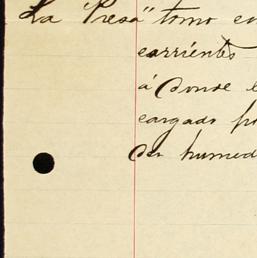 La "Presa" tomo en
corrientes
á donde
cargado
humed